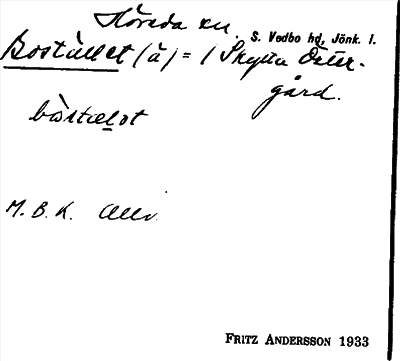 Höreda sn.
S. Vedbo hd, Jönk. l.
Bostället (ä) = / Skytta Öster-
gård.
bòstælət
M. B. K. Allv.
FRITZ ANDERSSON 1933